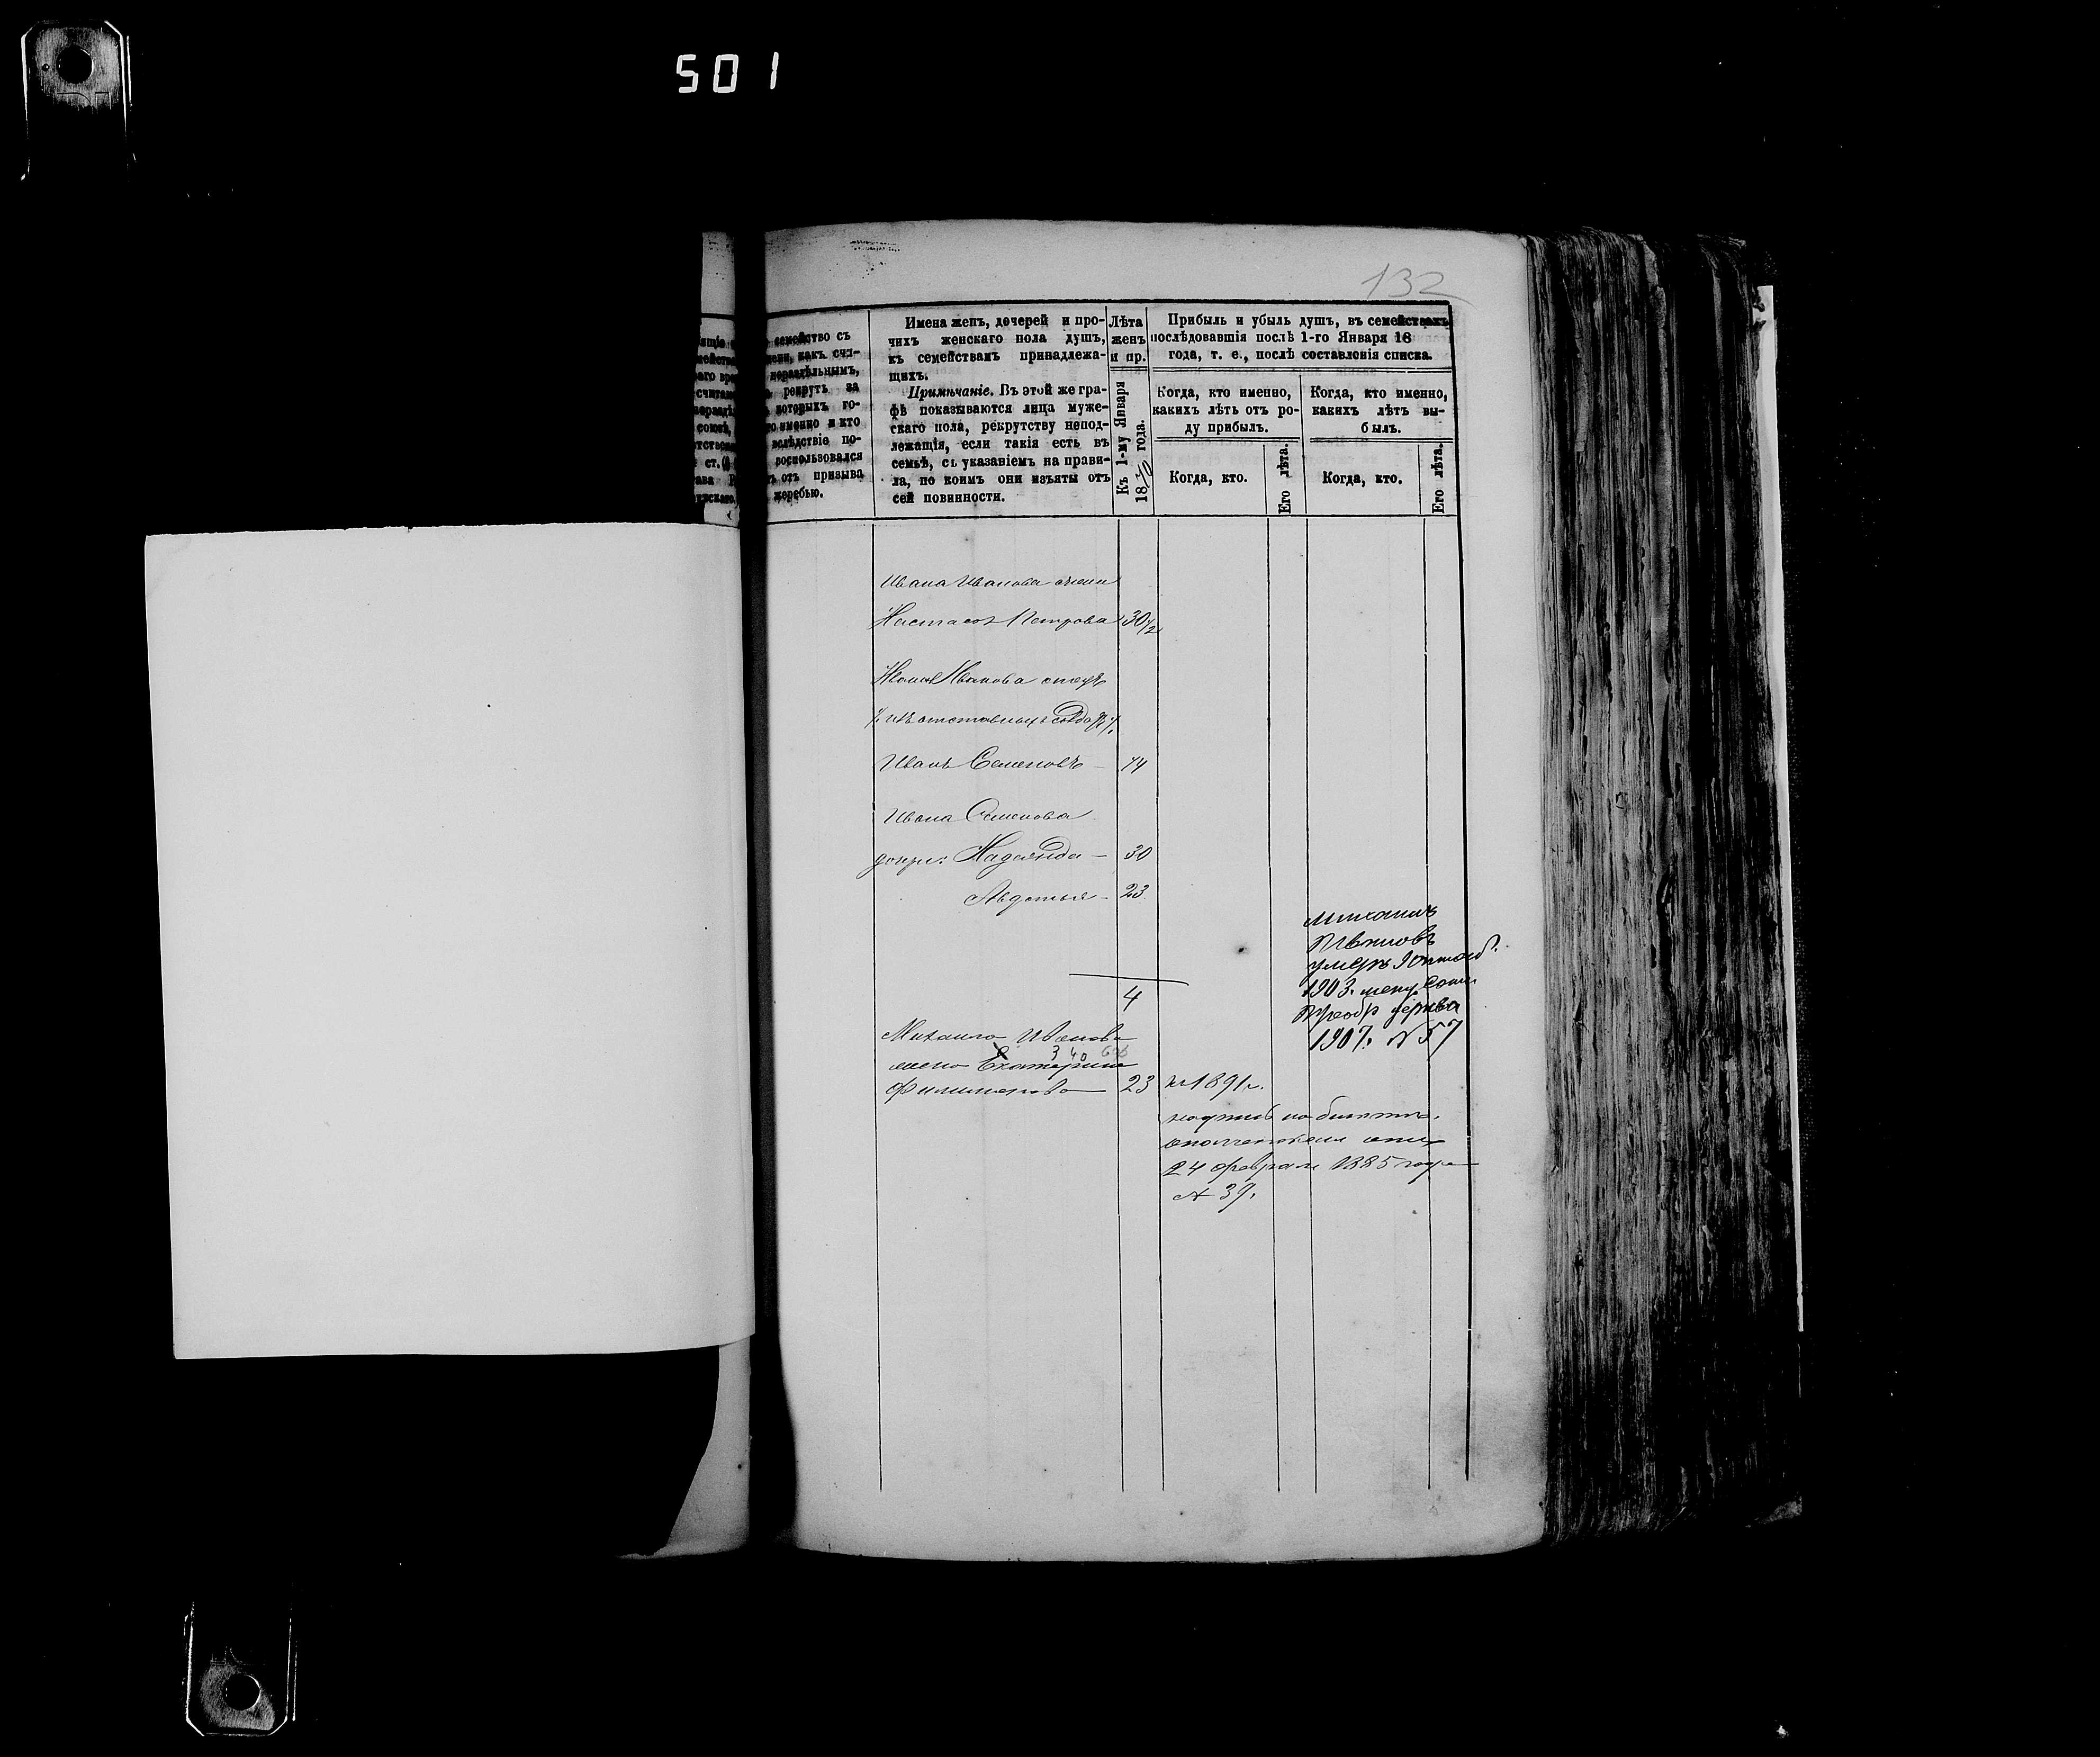 501
132
семейство съ
какъ счи-
нераздѣльнымъ,
рекрутъ за
которыхъ го-
именно и кто
вслѣдствіе по-
воспользовался
отъ призыва
жеребью.
Имена женъ, дочерей и про-
чихъ женскаго пола душъ,
къ семействамъ принадлежа-
щихъ.
Примѣчаніе. Въ этой же гра-
фѣ показываются лица муже-
скаго пола, рекрутству непод-
лежащія, если такія есть въ
семьѣ, съ указаніемъ на прави-
ла, по коимъ они изъяты отъ
сей повинности.
Лѣта
женъ
и пр.
Къ 1-му Января
1870 года.
Прибыль и убыль душъ, въ семействахъ
послѣдовавшія послѣ 1-го Января 18
года, т. е., послѣ составленія списка.
Когда, кто именно,
какихъ лѣтъ отъ ро-
ду прибылъ.
Когда, кто именно,
какихъ лѣтъ вы-
былъ.
Когда, кто.
Его лѣта.
Когда, кто.
Его лѣта.
Ивана Иванова жена
Настасья Петрова 30 1/2
Ивана Иванова отецъ
изъ отставныхъ солдатъ
Иванъ Семеновъ — 74
Ивана Семенова
дочери: Надежда — 30
Авдотья — 23
4
Михаилъ
Ивановъ
умеръ 9
1903.
1907. № 57
Михаила Иванова
340
жена Екатерина
Филимонова 23 къ 1891 г.
24 февраля 1885 года
№ 39.